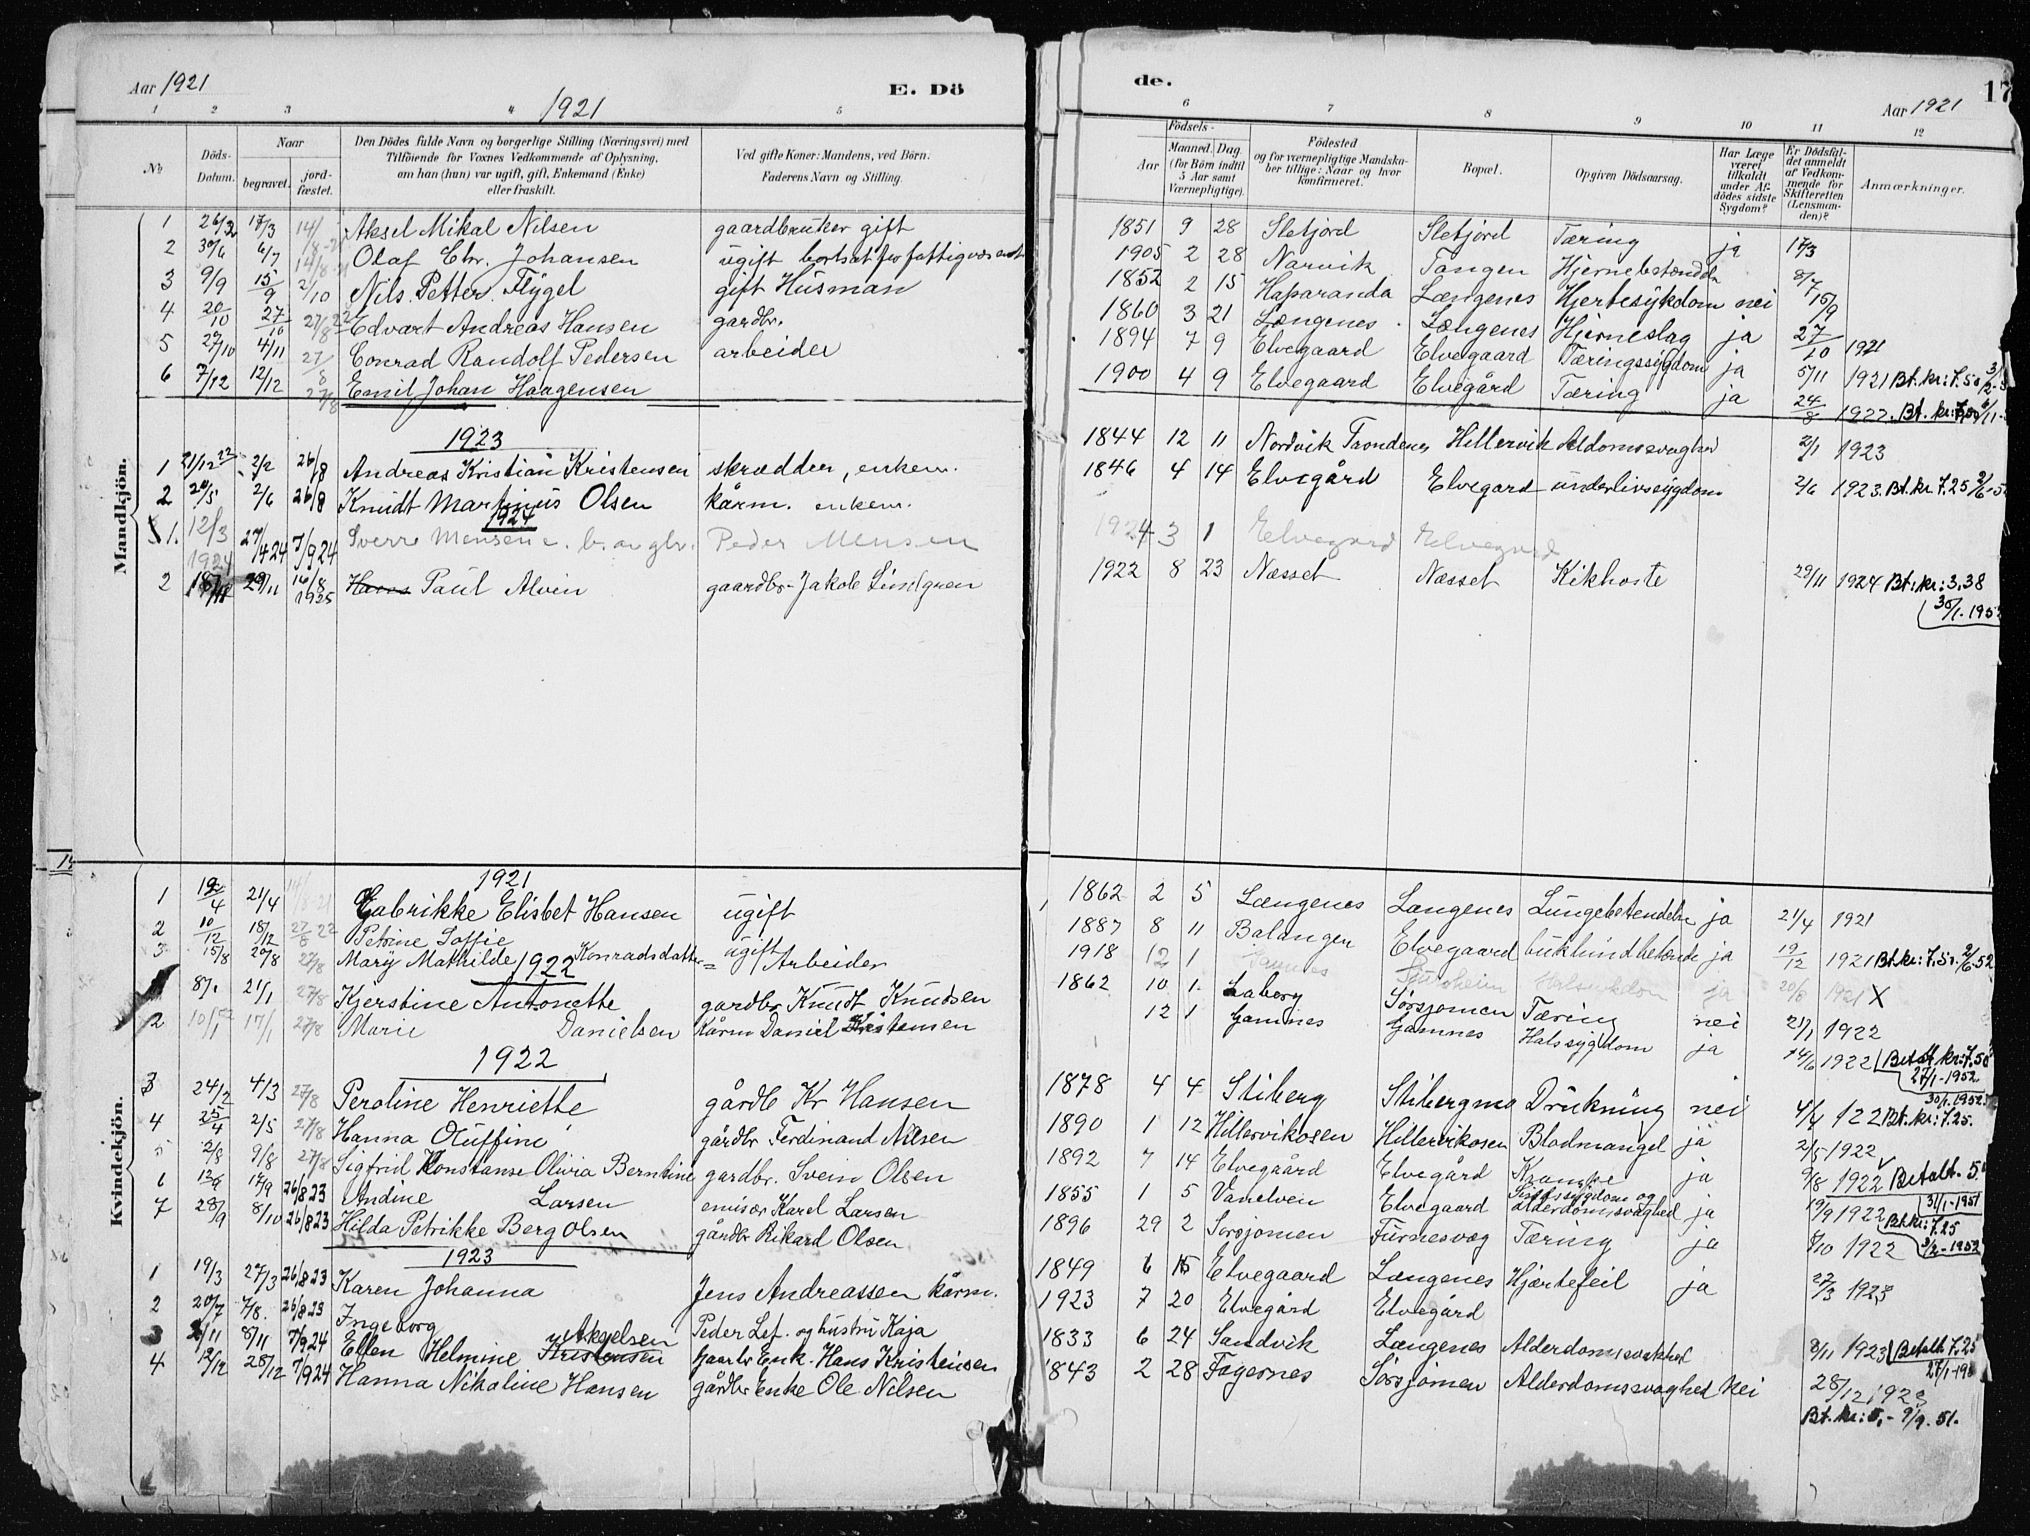 Aar 1921 E. Dö de. Aar 1921 17
1 2 3 4 1921 5 6 7 8 9 10 11 12
No Döds-Datum. Naar begravet. jordfæstet. Den Dödes fulde Navn og borgerlige Stilling (Næringsvei) med Tilföiende for Voxnes Vedkommende af Oplysning, om han (hun) var ugift, gift, Enkemand (Enke) eller fraskilt. Ved gifte Koner: Mandens, ved Börn: Faderens Navn og Stilling. Födsels- Aar Maaned. Dag. (for Börn indtil 5 Aar samt Værnepligtige). Födested og for værnepligtige Mandskaber tillige: Naar og hvor Konfirmeret. Bopæl. Opgiven Dödsaarsag. Har Læge været tilkaldt under Afdödes sidste Sygdom? Er Dödsfaldet anmeldt af Vedkommende for Skifteretten (Lensmanden)? Anmærkninger.
Mandkjön.
1 26/2 17/3 14/8-21 Aksel Mikal Nilsen gaardbruker gift 1851 9 28 Sletjord Sletjord Tæring ja 17/3
2 30/6 6/7 14/8-21 Olaf Ebr. Johansen ugift bortsat for fattigvæsenet 1905 2 28 Narvik Tangen Hjernebetændelse 8/7
3 9/9 15/9 2/10 Nils Petter Flygel gift Husman 1852 2 15 Haparanda Længenes Hjertesykdom nei 15/9
4 20/10 27/10 27/8 22 Edvart Andreas Hansen gardbr. 1860 3 21 Længenes Længenes Hjerneslag ja 27/10 1921
5 27/10 4/11 27/8 Conrad Randolf Pedersen arbeider 1894 7 9 Elvegaard Elvegaard Tæringssygdom ja 5/11 1921 Bt. kr: 7.50
6 7/12 12/12 27/8 Emil Johan Haagensen 1900 4 9 Elvegaard Elvegård Tæring ja 24/8 1922. Bt. kr: 7,50
1923
1 21/12 22 2/2 26/8 Andreas Kristian Kristensen skrædder, enkem. 1844 12 11 Nordvik Trondenes Hillervik Aldomssvaghed 2/1 1923
2 20/5 2/6 26/8 Knudt Martinus Olsen kårm. enkem. 1846 4 14 Elvegård Elvegard underlivssygdom 2/6 1923. Bt. kr 7.25 2/6-5
1924
1. 12/3 1924 27/4 24 7/9 24 Sverre Monsen Peder Monsen 1924 3 1 Elvegaard Elvegaard
2 18/11 29/11 16/8 1925 Hans Paul Alvin gaardbr. Jakob Lindgren 1922 8 23 Næsset Næsset Kikhoste 29/11 1924 Bt. kr: 3.38
30/1.1952
Kvindekjön.
1921
1 12/4 21/4 14/8-21 Gabrikke Elisbet Hansen ugift 1862 2 5 Længenes Langenes Lungebetendelse ja 21/4 1921
2 10/12 18/12 27/8 22 Petrine Soffie ugift 1887 8 11 Balangen Elvegaard bukhindbetende ja 19/12 1921 Bt. kr: 7.50 2/6 52
3 15/8 20/8 27/8 Mary Mathilde Konradsdatter Arbeider 1918 12 1 ja 20/8 1921 X
1922
8/1 21/1 27/8 Kjerstine Antonette gardbr Knudt Knudsen 1862 10 1. Laberg Sørsjomen Tæring nei 21/1 1922
2 10/1 17/1 27/8 Marie Danielsen Kårm Daniel Kristensen 12 1 Gamnes Gamnes Halssygdom ja 14/6 1922 Betalt kr: 7.50
27/1-1952
1922
3 24/2 4/3 27/8 Peroline Henriette gårdb Kr Hansen 1878 4 4 Stiberg Stibergmo Drukning nei 4/4 122 Bt. kr: 7.25. 30/1.1952
4 25/4 2/5 27/8 Hanna Oluffine gårdbr Ferdinand Nilsen 1890 1 12 Hillervikosen Hillervikosen Blodmangel ja 2/5 1922
5 2/8 9/8 27/8 Sigfrid Konstanse Olivia Berntine gardbr. Svein Olsen 1892 7 14 Elvegaård Elvegård Krampe ja 9/8 1922 Betalt. 5 31/1-1951
6 12/9 17/9 26/8 23 Andine Larsen emisær Karel Larsen 1855 1 5 Vanelven Elvegaard Sindssygdom og alderdomssvaghed ja 19/9 1922 Bt. kr: 7.25
7 28/9 8/10 26/8 23 Hilda Petrikke Berg Olsen gårdbr Rikard Olsen 1896 29 2 Sørsjomen Furnesvæg Tæring ja 8/10 1922 3/2-1952
1923
1 19/3 27/3 26/8 23 Karen Johanna Jens Andreassen kårm. 1849 6 15 Elvegaard Længenes Hjærtefeil ja 27/3 1923
2 20/7 7/8. 26/8 23 Ingeborg Peder Lef. og hustru Kaja 1923 7 20 Elvegård Elvegård
3 2/11 8/11 7/9 24 Ellen Helmine Akselsen Kristensen Gaarbr Enk. Hans Kristensen 1833 6 24 Sandvik Længenes Alderdomssvakhed 8/11 1923 Betalt 7.25
27/1-19
4 19/12 28/12 7/9 24 Hanna Nikoline Hansen gårdbr Enke Ole Nilsen 1843 2 28 Fagernes Sørsjomen Alderdomssvaghed Nei 28/12 1923
Bt. kr: 5,- 9/9. 51.